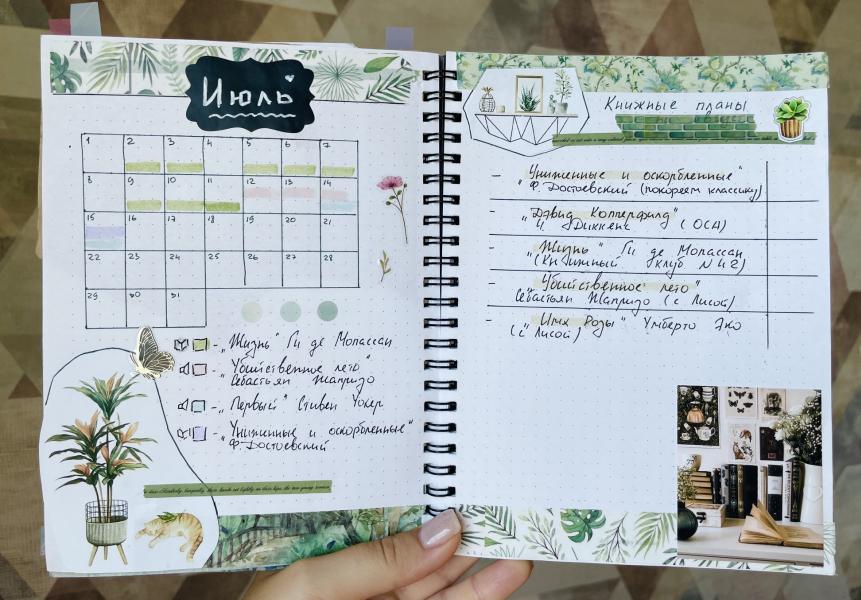 Июль
1 2 3 4 5 6 7
8 9 10 11 12 13 14
15 16 17 18 19 20 21
22 23 24 25 26 27 28
29 30 31
- „Жизнь" Ги де Мопассан
- „Убийственное лето"
Себастьян Жапризо
- „Первый" Стивен Укер
- „Униженные и оскорбленные"
Ф. Достоевский
Книжные планы
- „Униженные и оскорбленные"
Ф. Достоевский (покоряем классику)
- „Дэвид Копперфилд"
Ч. Диккенс (ОСА)
- „Жизнь" Ги де Мопассан
(Книжный клуб №42)
- „Убийственное лето"
Себастьян Жапризо (с Лисой)
- „Имя Розы" Умберто Эко
(с Лисой)